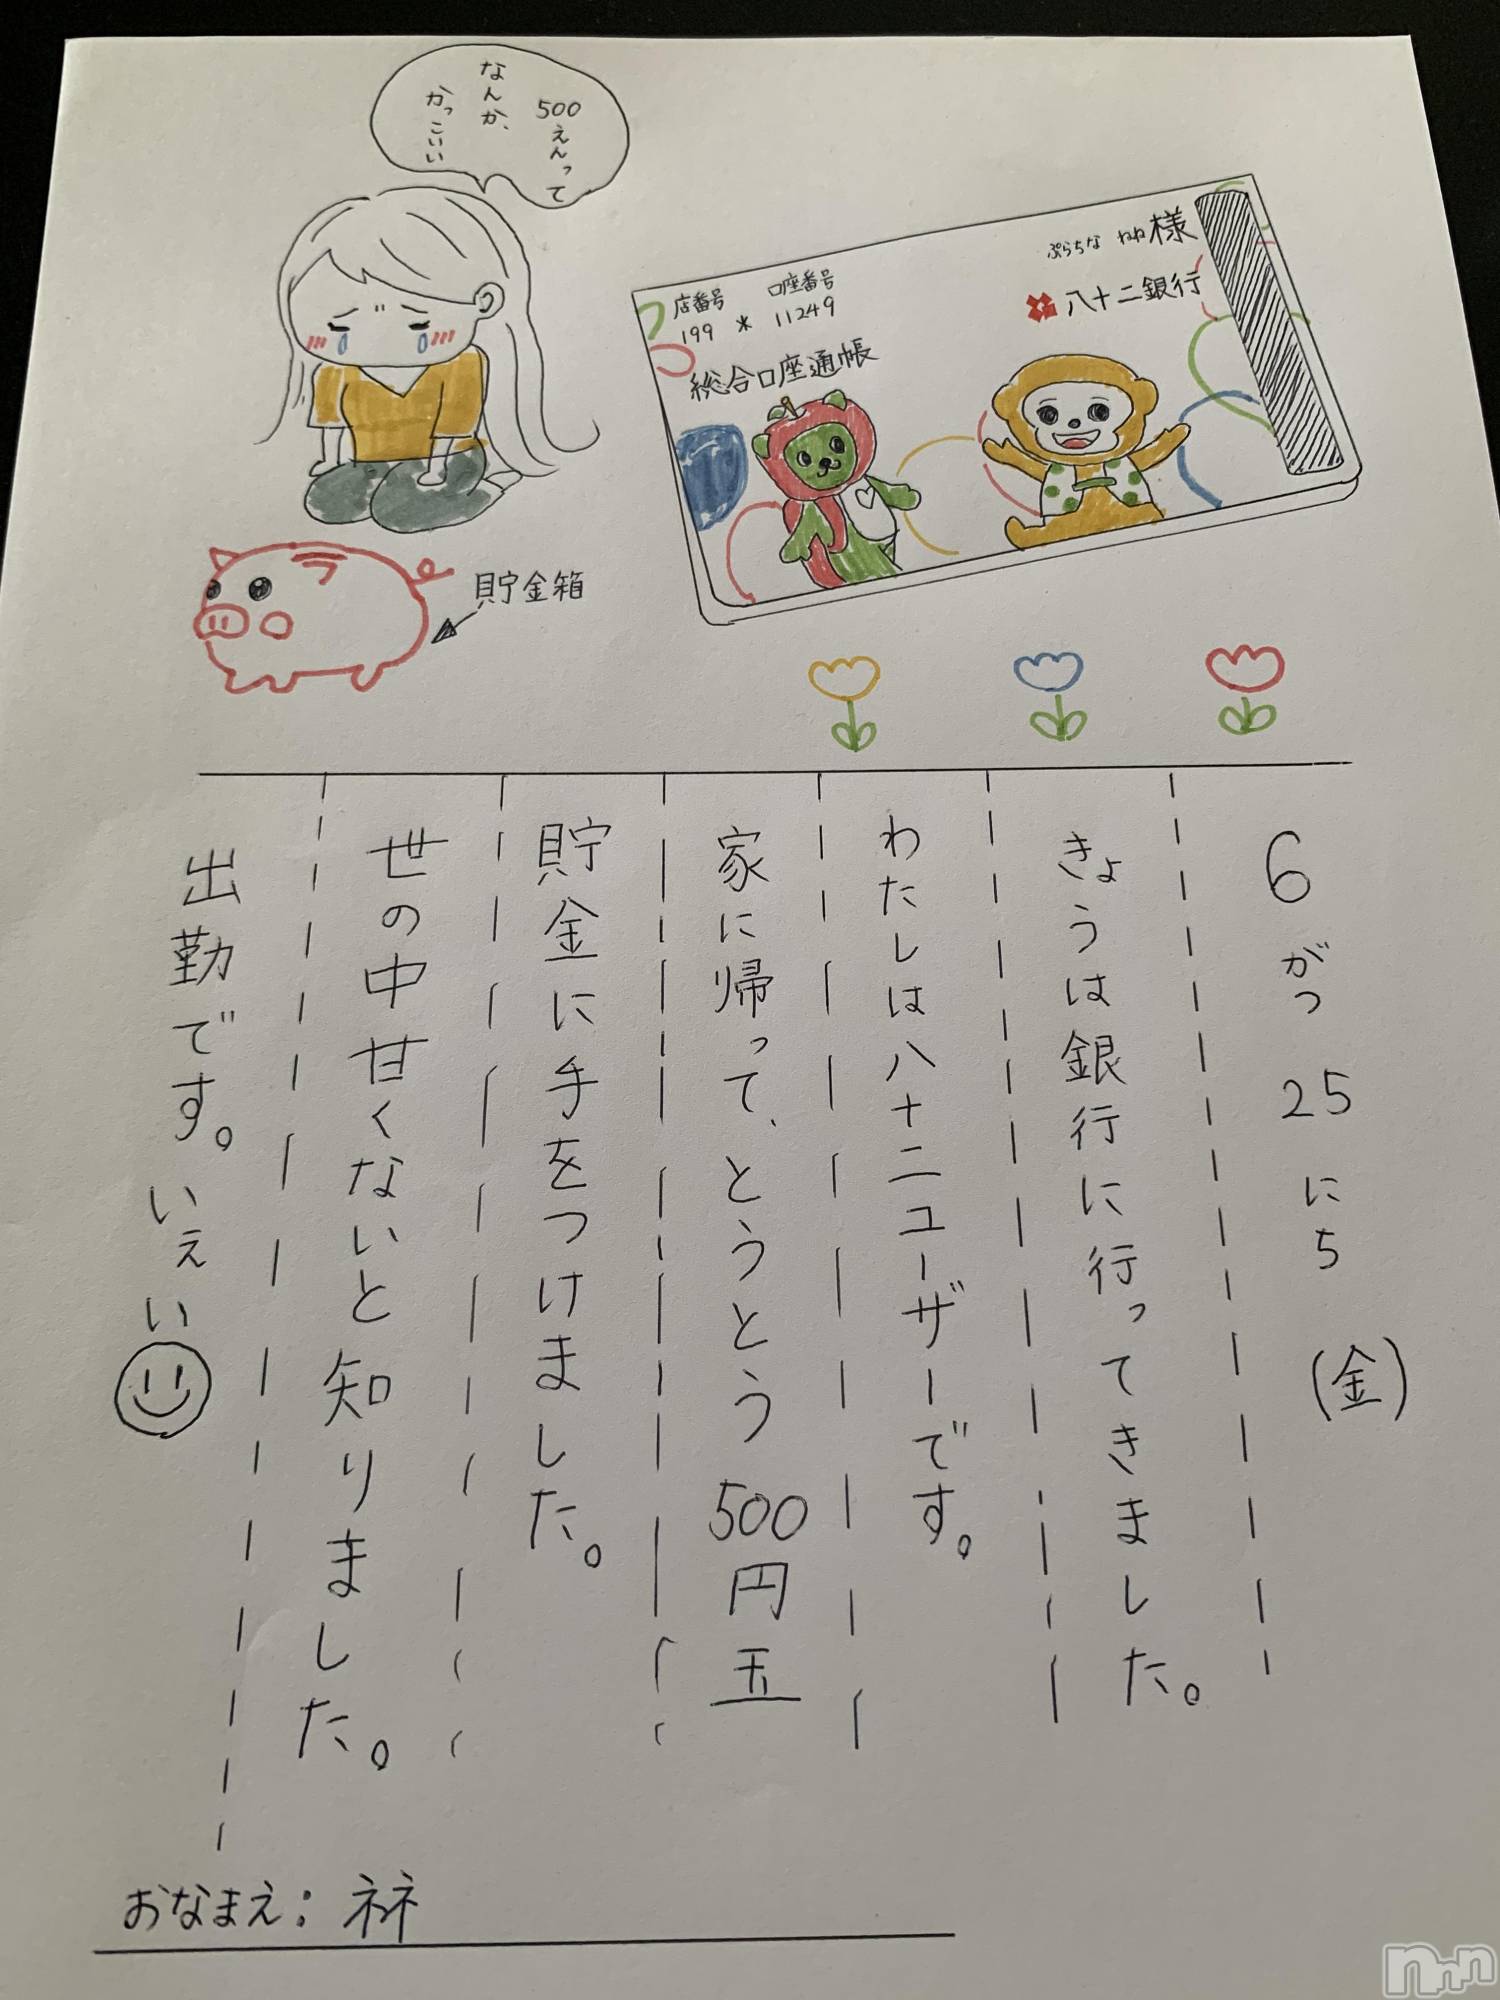 500えんって
なんか、
かっこいい
ぷらちな ねね様
八十二銀行
店番号 口座番号
199 * 11249
総合口座通帳
貯金箱
6がつ 25にち (金)
きょうは銀行に行ってきました。
わたしは八十二ユーザーです。
家に帰って、とうとう500円玉
貯金に手をつけました。
世の中甘くないと知りました。
出勤です。いぇい
おなまえ: ネネ
nnn